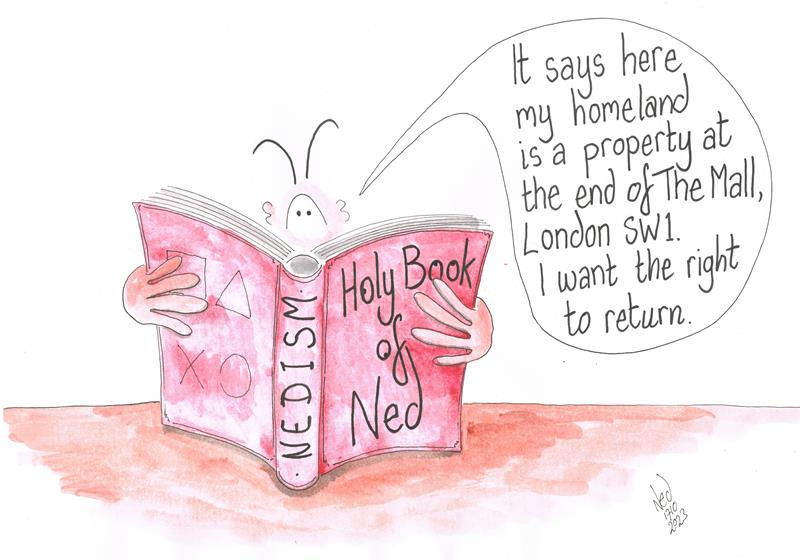 It says here
my homeland
is a property at
the end of The Mall,
London SW1.
I want the right
to return.
·NEDISM·
Holy Book
of
Ned
Ned
17/10
2023